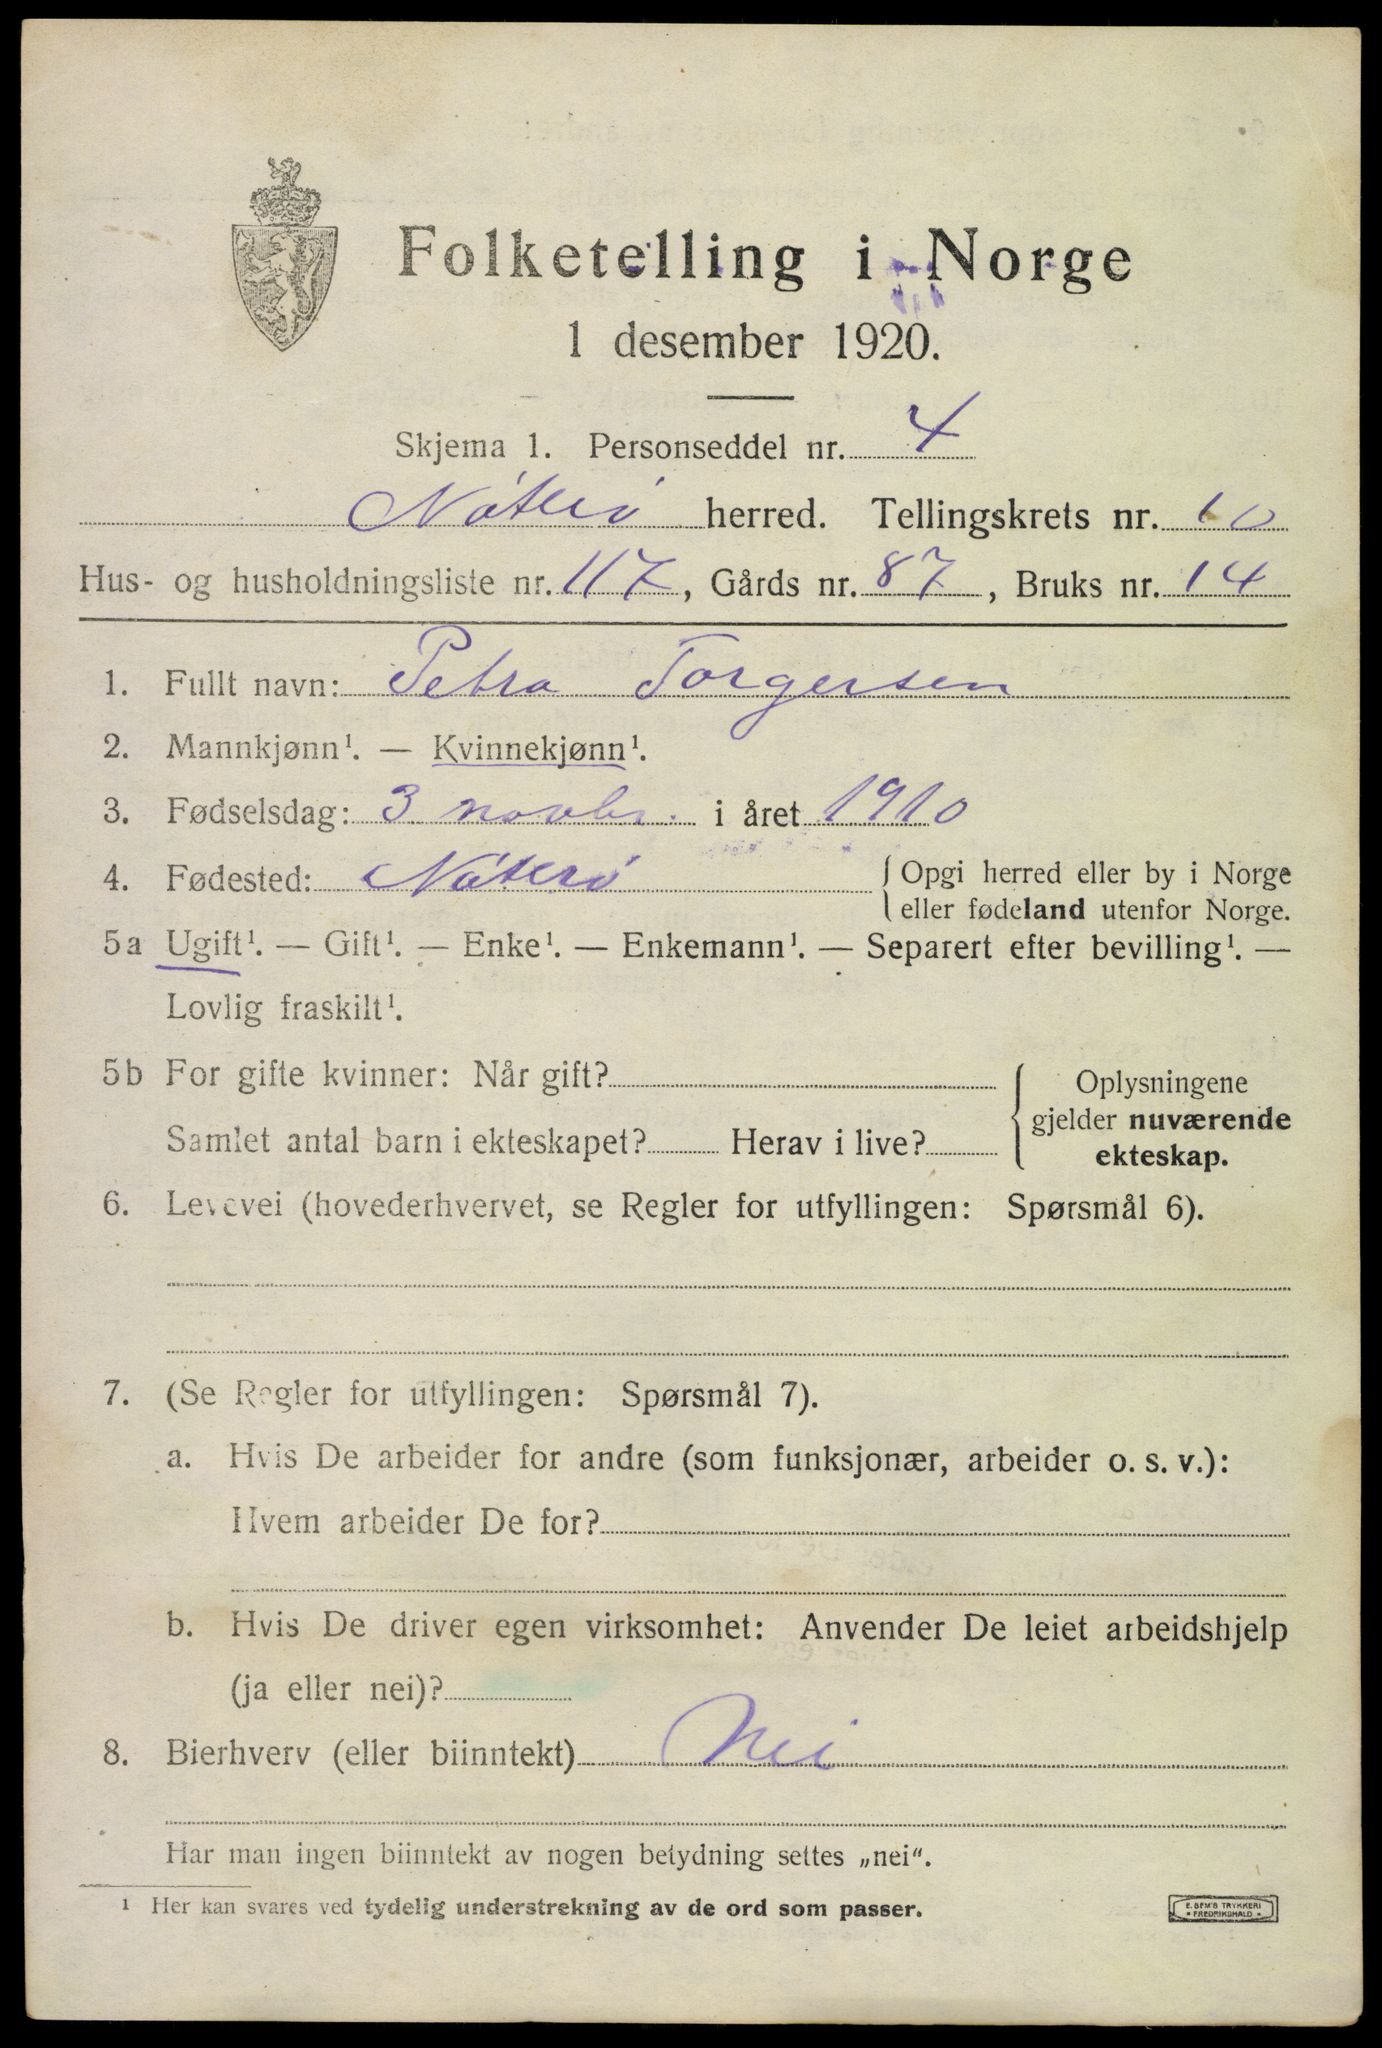 Folketelling i Norge
1 desember 1920.
Skjema 1. Personseddel nr. 4
Nóteró herred. Tellingskrets nr. 10
Hus- og husholdningsliste nr. 117, Gårds nr. 87, Bruks nr. 14
1. Fullt navn: Petra Torgersen
2. Mannkjønn¹. — Kvinnekjønn¹.
3. Fødselsdag: 3 novbr. i året 1910
4. Fødested: Nóteró { Opgi herred eller by i Norge
eller fødeland utenfor Norge.
5a Ugift¹. — Gift¹. — Enke¹. — Enkemann¹. — Separert efter bevilling¹. —
Lovlig fraskilt¹.
5b For gifte kvinner: Når gift? { Oplysningene
gjelder nuværende
Samlet antal barn i ekteskapet? Herav i live?
ekteskap.
6. Levevei (hovederhvervet, se Regler for utfyllingen: Spørsmål 6).
7. (Se Regler for utfyllingen: Spørsmål 7).
a. Hvis De arbeider for andre (som funksjonær, arbeider o. s. v.):
Hvem arbeider De for?
b. Hvis De driver egen virksomhet: Anvender De leiet arbeidshjelp
(ja eller nei)?
8. Bierhverv (eller biinntekt) Nei
Har man ingen biinntekt av nogen betydning settes „nei“.
¹ Her kan svares ved tydelig understrekning av de ord som passer.
E. SEM'S TRYKKERI
* FREDRIKSHALD *